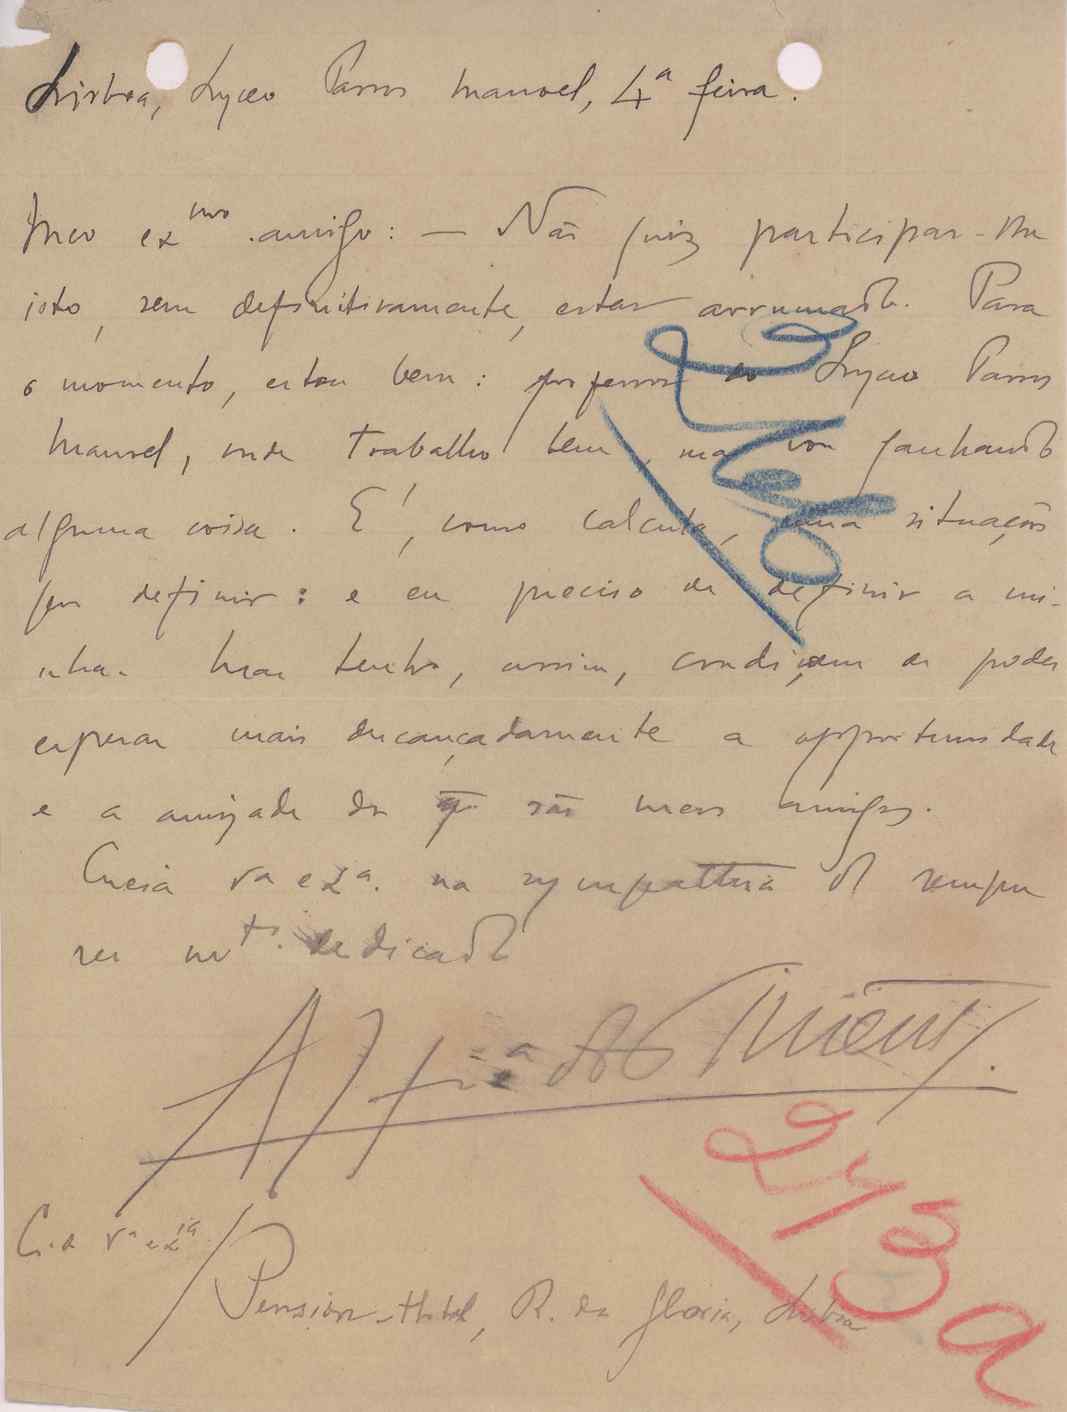 Lisboa, Lyceo Passos Manoel, 4ª feira.
Meu exmo. amigo: — Não quiz participar-lhe
isto, sem definitivamente, estar arrumado. Para
o momento, estou bem: professor do Lyceo Passos
Manoel, onde trabalho bem, mas vou ganhando
alguma coisa. É, como calcula, uma situação
por definir: e eu preciso de definir a mi-
nha. Mas tenho, assim, condições de poder
esperar mais descançadamente a opportunidade
e a amizade dos q. são meus amigos.
Creia Va exa. na sympathia do sempre
seu mto. dedicado
Pimenta.
C. a Va exia
Pension-Hotel, R. da Gloria, Lisboa
273a